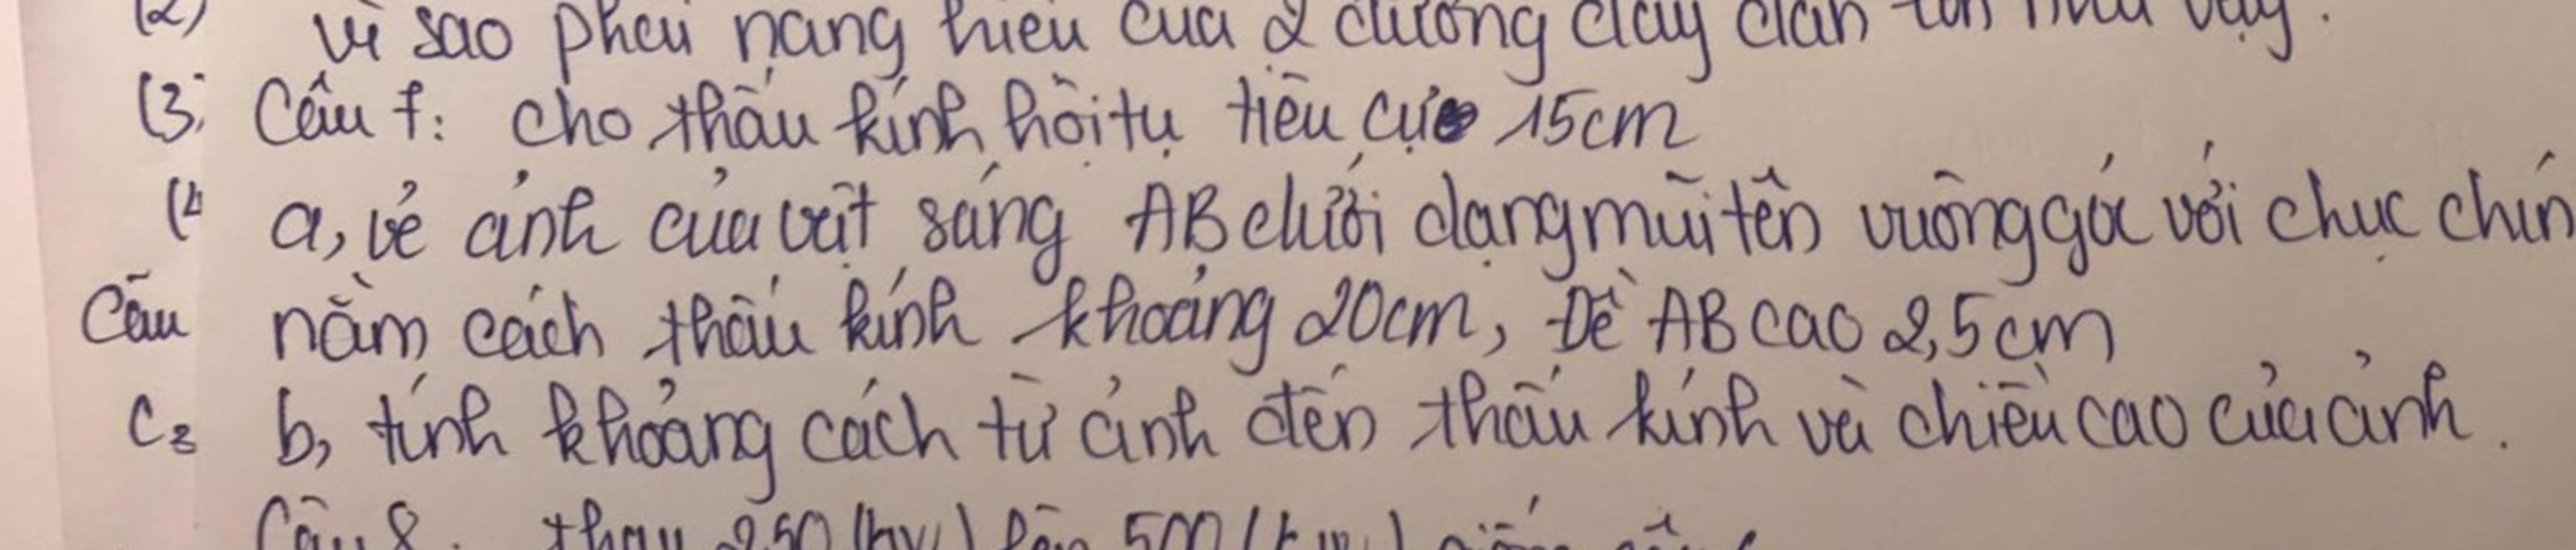 (2) vì sao phải nâng hiệu của 2 đường dây dẫn lớn như vậy.
(3) Câu 7: cho thấu kính hội tụ tiêu cự 15cm
(4 a, vẽ ảnh của vật sáng AB dưới dạng mũi tên vuông góc với chục chín
Câu nằm cách thấu kính khoảng 20cm, Để AB cao 2,5cm
C3 b, tính khoảng cách từ ảnh đến thấu kính và chiều cao của ảnh.
Câu 8. thay 250 (kv) lên 500 (kw)